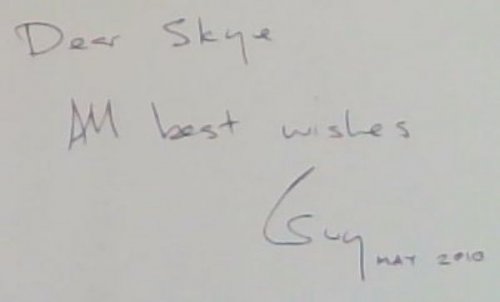 Dear Skye
All best wishes
Guy MAY 2010